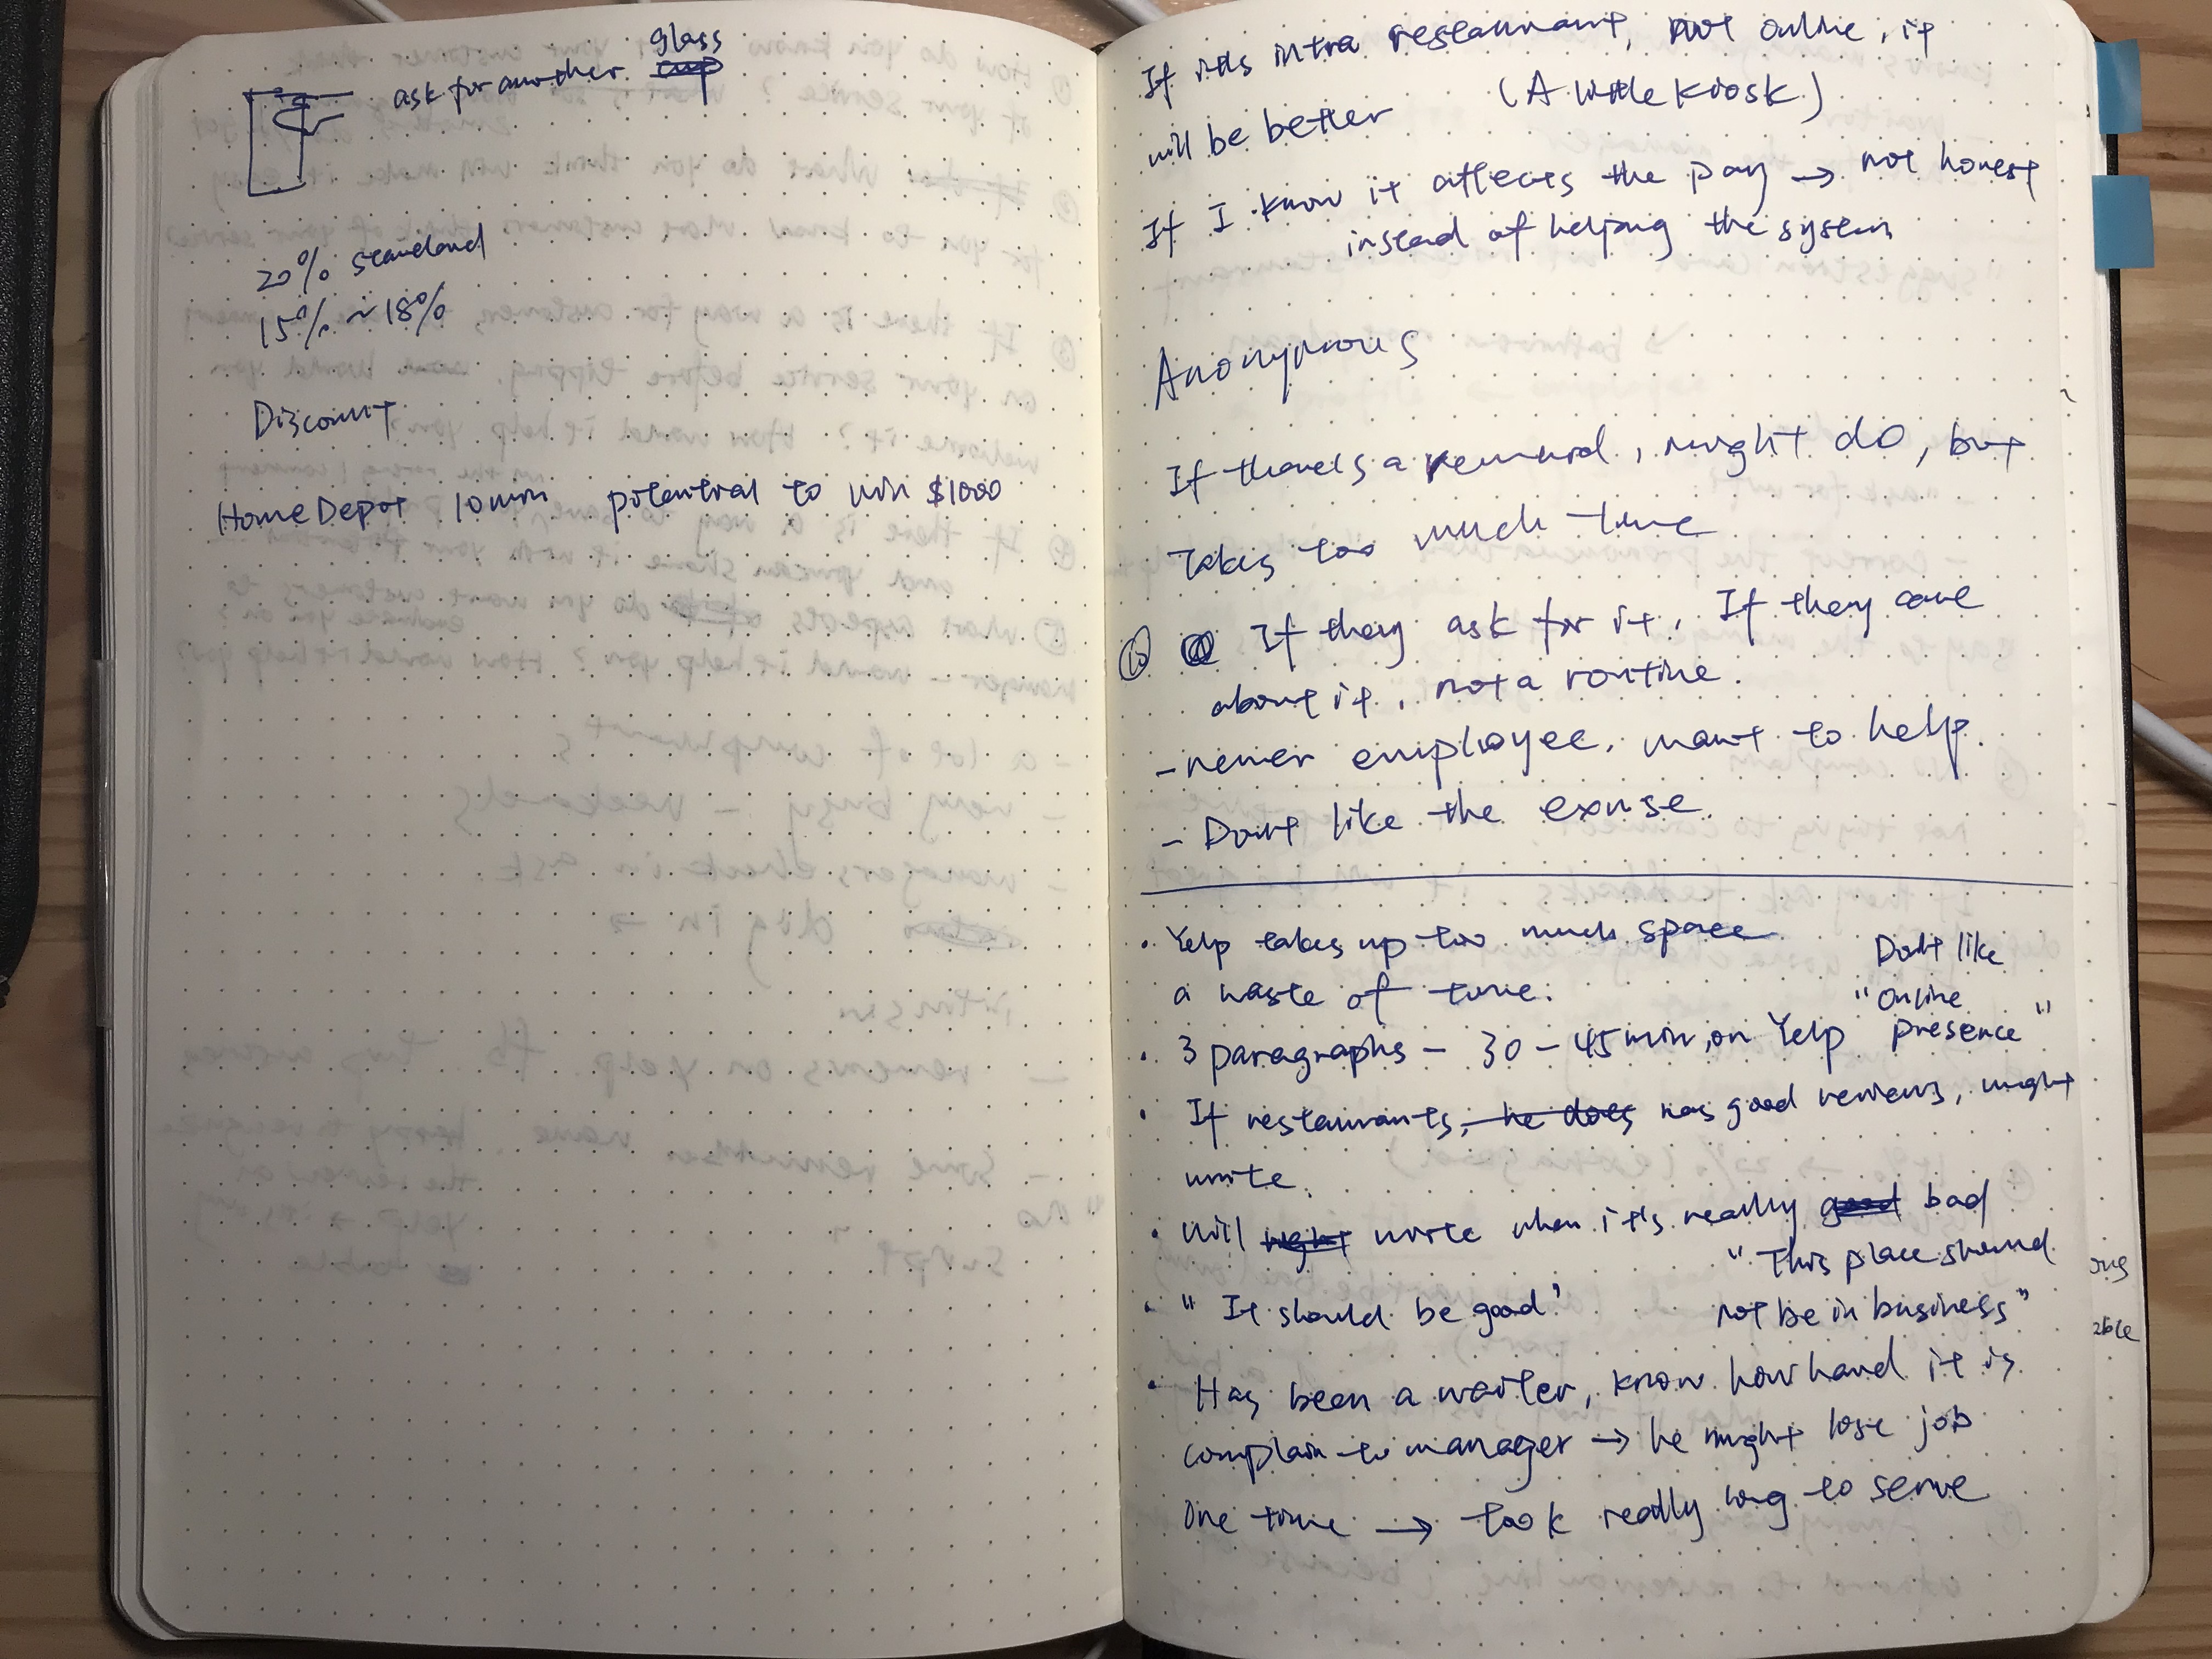 glass
ask for another cup
20% standard
15% ~ 18%
Discount
HomeDepot 10min potential to win $1000
If it's intra restaurant, not online, it
will be better (A little kiosk)
If I know it affects the pay → not honest
instead of helping the system
Anonymous
If there's a reward, might do, but
Takes too much time
If they ask for it, If they care
about it, not a routine.
- newer employee, want to help.
- Don't like the excuse.
• Yelp takes up too much space
a waste of time.
Don't like
"Online
presence"
• 3 paragraphs - 30-45 min, on Yelp
• If restaurants, he does has good reviews, might
write.
• Will might write when it's really good bad
"This place should
not be in business"
• "It should be good"
• Has been a waiter, know how hard it is
complain to manager → he might lose job
One time → took really long to serve